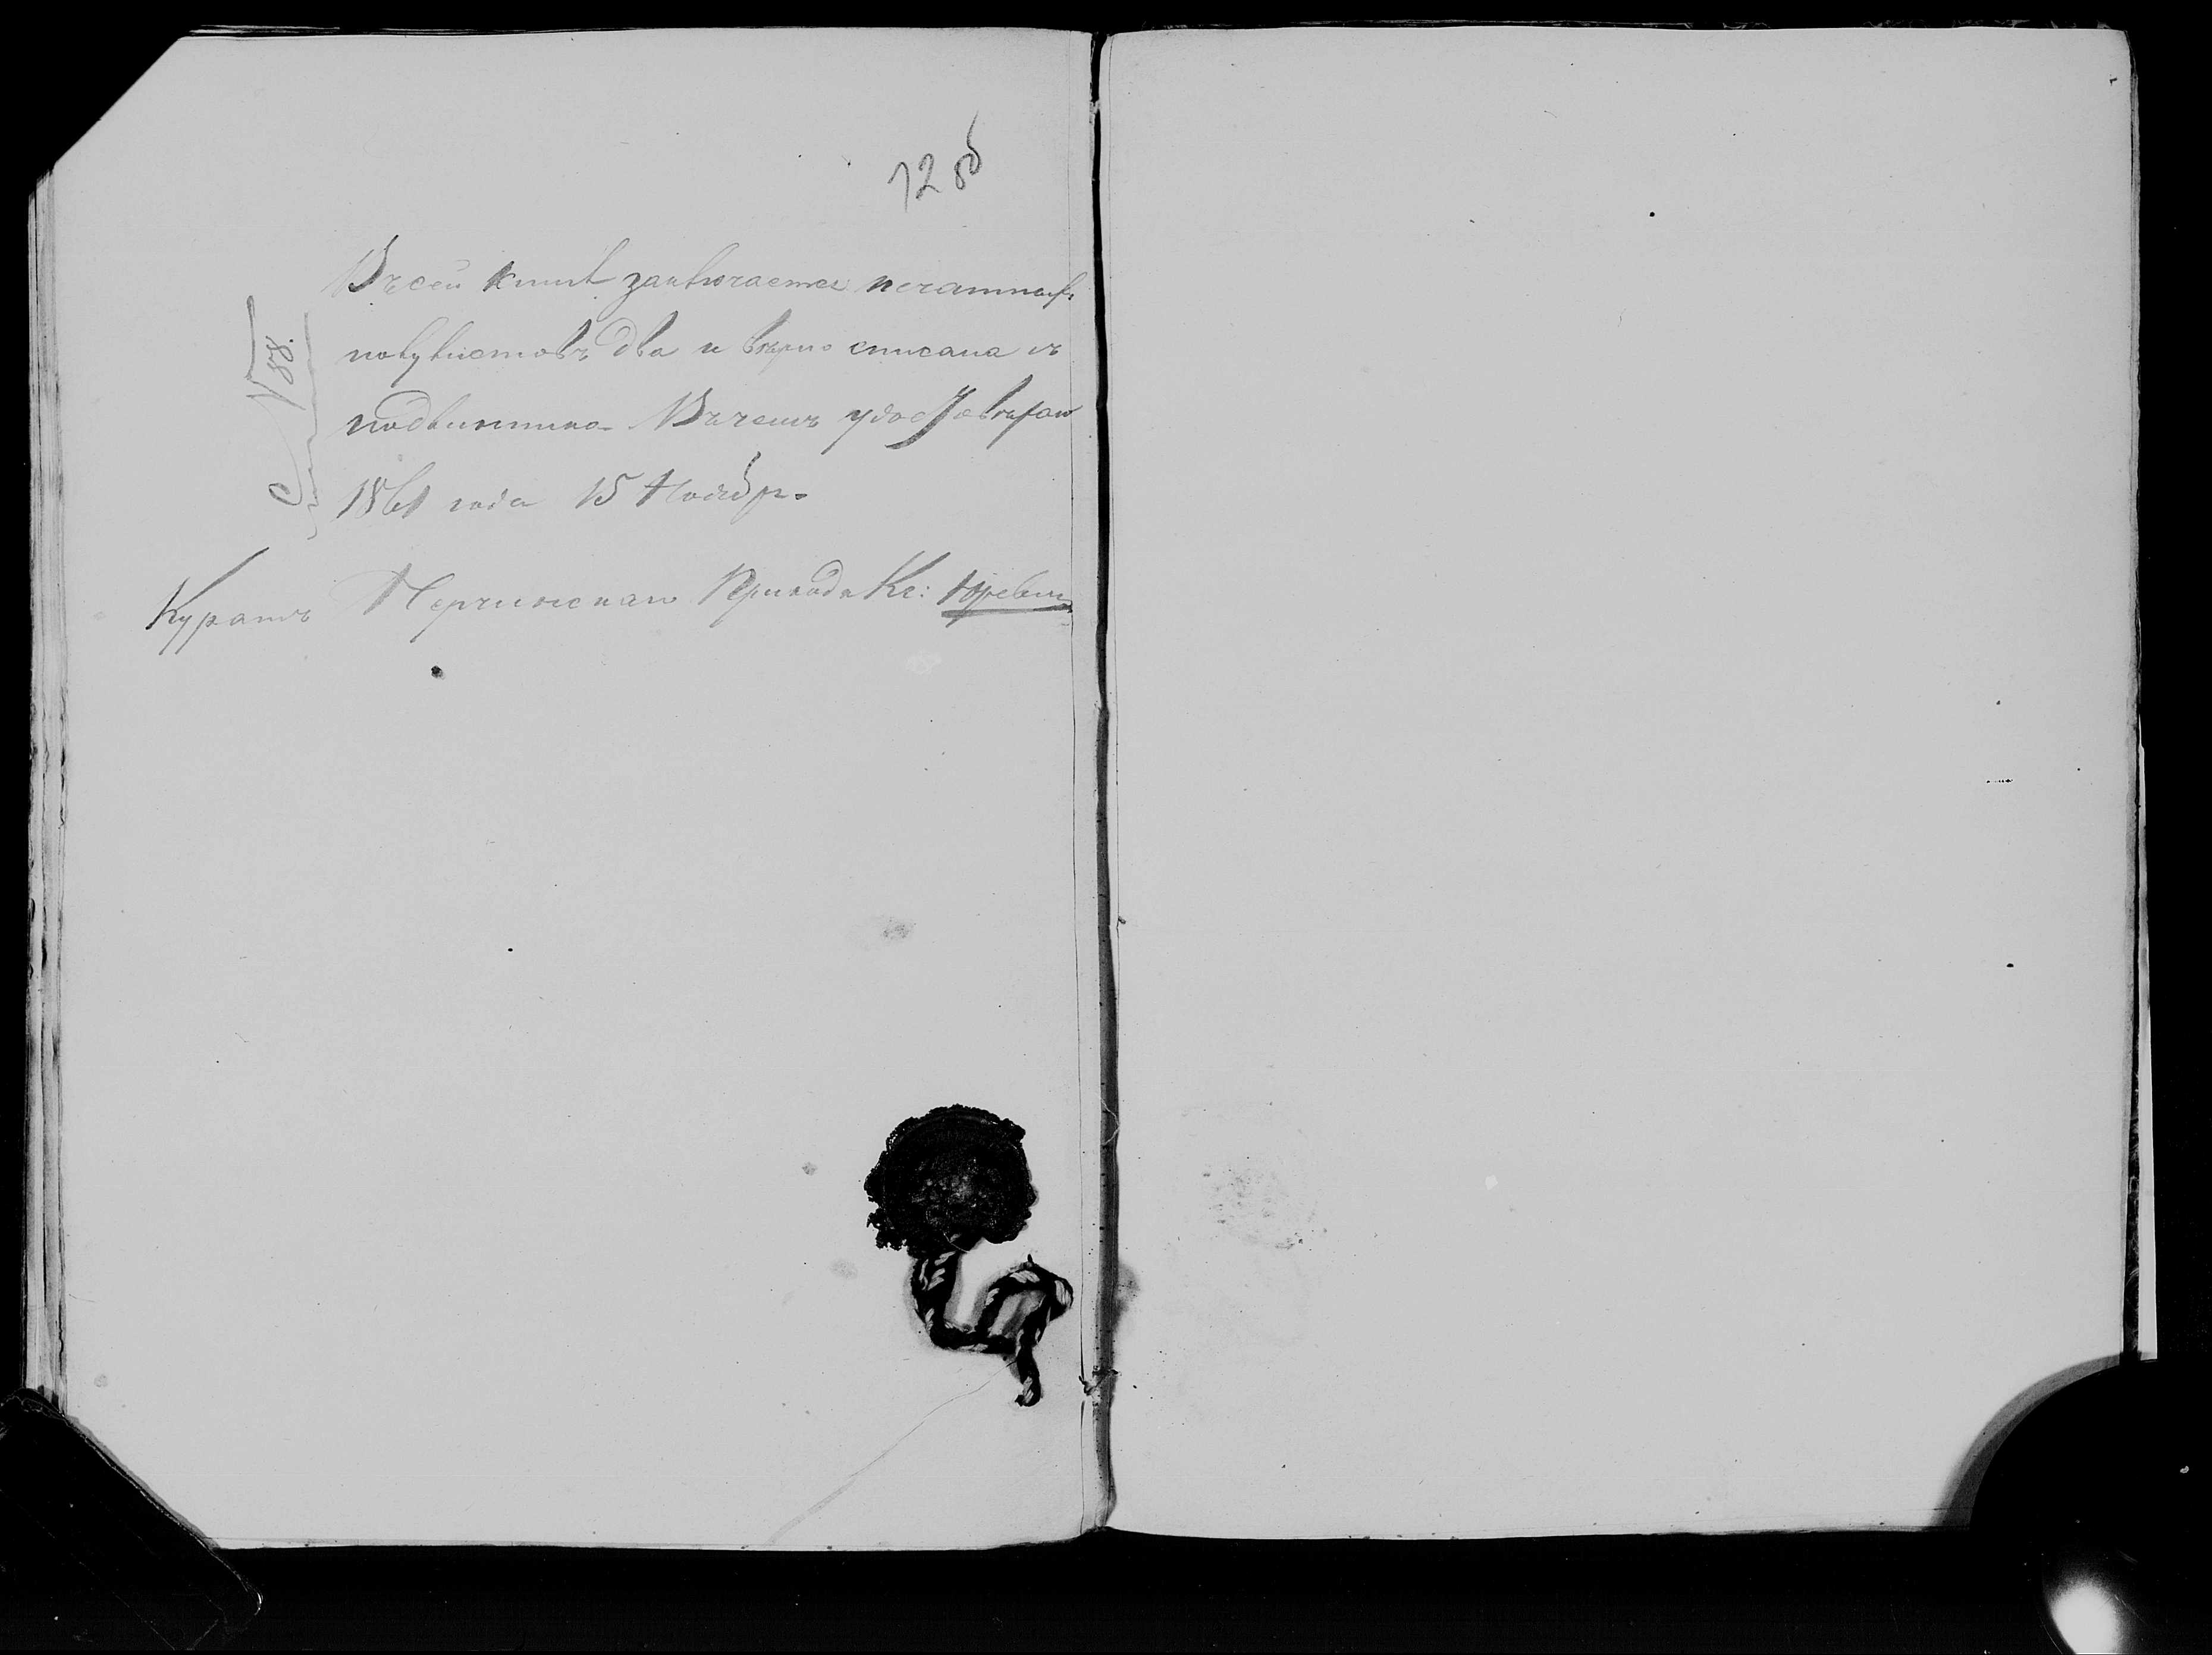 72 об
Въ сей книгѣ заключается печатныхъ
полулистовъ два и вѣрно списана съ
подлинника. Въ чемъ удостовѣряю
1861 года 15 Ноября.
№ 88.
Куратъ Прихода Кс: Юревичъ